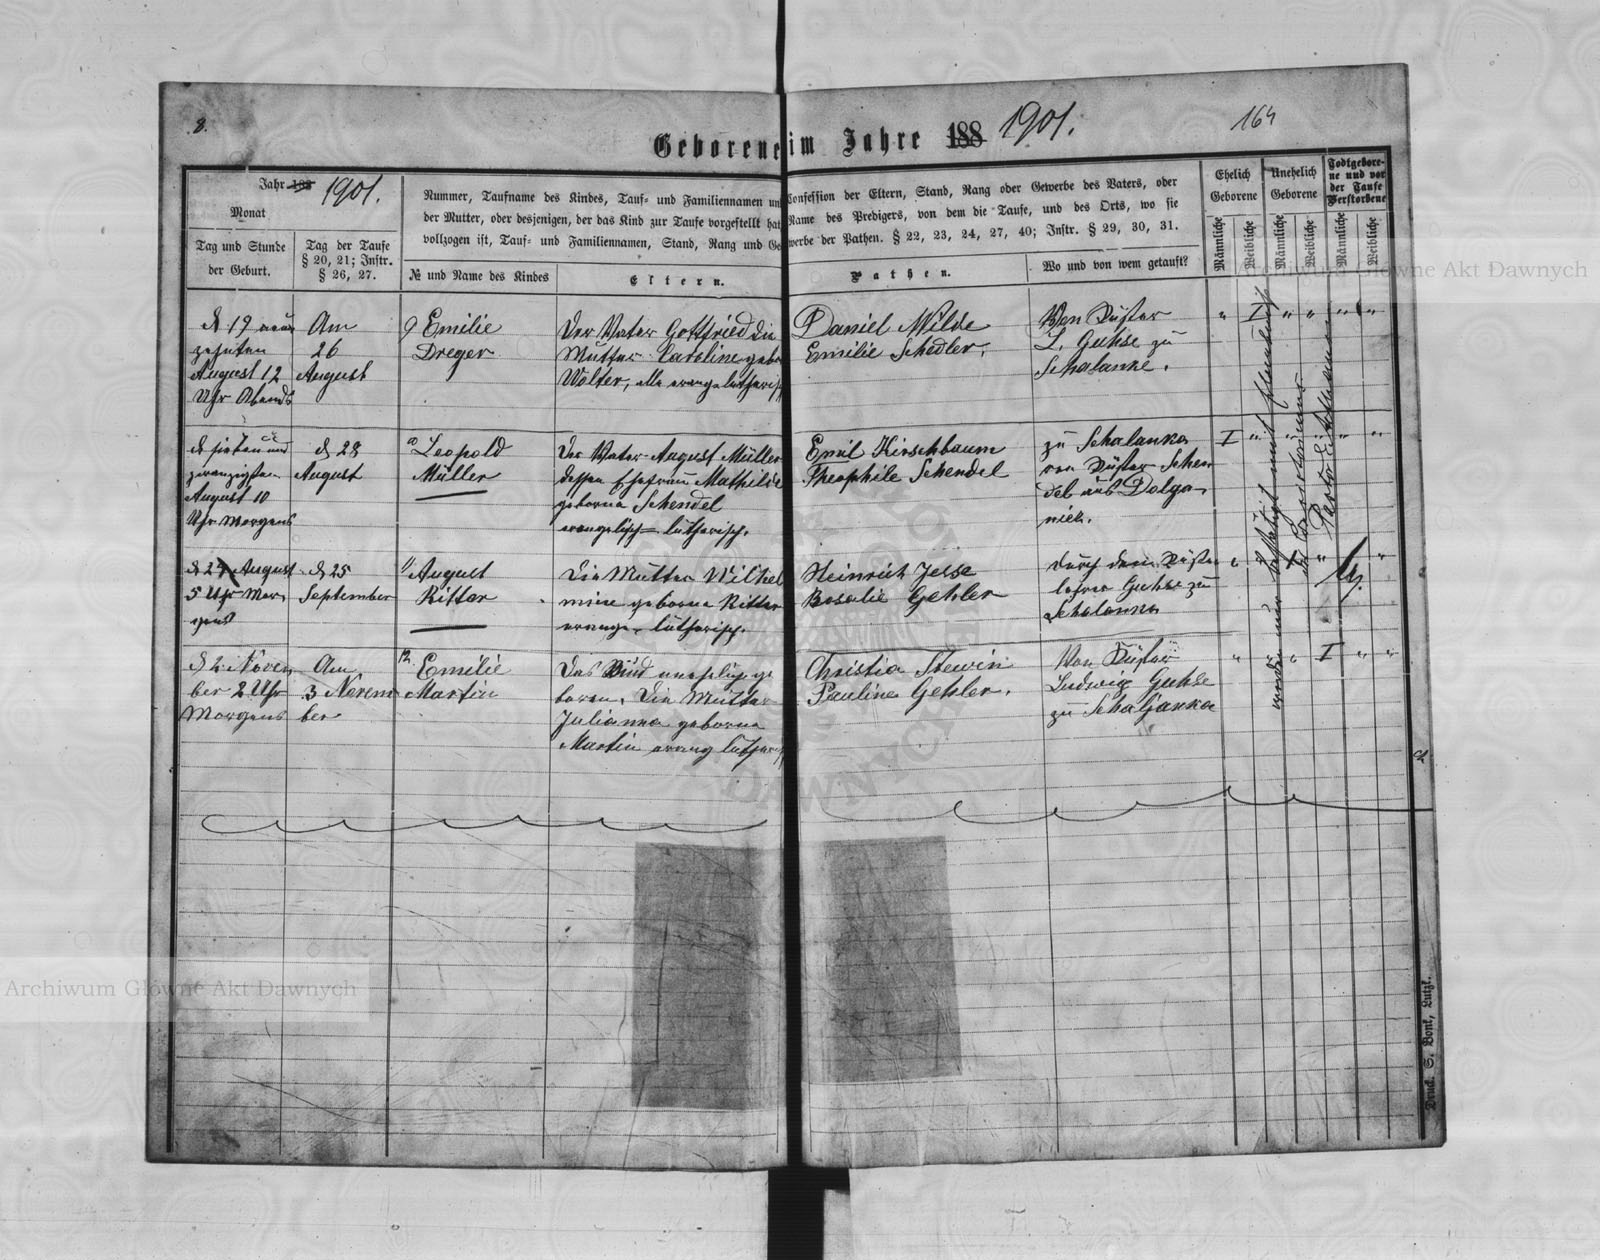 8.
164
Geborene im Jahre 188 1901.
Jahr 188 1901.
Monat
Tag und Stunde
der Geburt.
Tag der Taufe
§ 20, 21; Instr.
§ 26, 27.
Nummer, Taufname des Kindes, Tauf- und Familiennamen un
der Mutter, oder desjenigen, der das Kind zur Taufe vorgestellt hat
vollzogen ist, Tauf- und Familiennamen, Stand, Rang und Ge
№ und Name des Kindes
Eltern.
Confession der Eltern, Stand, Rang oder Gewerbe des Vaters, oder
Name des Predigers, von dem die Taufe, und des Orts, wo sie
werbe der Pathen. § 22, 23, 24, 27, 40; Instr. § 29, 30, 31.
Pathen.
Wo und von wem getauft?
Ehelich
Geborene
Unehelich
Geborene
Todtgebore-
ne und vor
der Taufe
Verstorbene
Männliche
Weibliche
Männliche
Weibliche
Männliche
Weibliche
d 19 neun
zehnten
August 12
Uhr Abends
Am
26
August
9 Emilie
Dreger
Der Vater Gottfried die
Mutter Caroline gebo
Wolter, alle evange lutherisch
Daniel Wilde
Emilie Schedler.
Von Küster
L. Guhse zu
Schalanke.
" I " " " "
d sieben und
zwanzigsten
August 10
Uhr Morgens
d 28
August
10 Leopold
Müller
Der Vater August Müller
dessen Ehefrau Mathilde
geborne Schendel
evangelisch-lutherisch.
Emil Hirschbaum
Theophile Schendel
zu Schalanka
von Küster Schen
del aus Dolga
niec.
I " " " " "
August
5 Uhr Mor
gens
d 25
September
11 August
Ritter
Die Mutter Wilhel
mine geborne Ritter
evange. lutherisch.
Heinrich Jesse
Rosalie Gehler
durch den Küster
lehrer Guhse zu
Schalanka
d 2 Novem
ber 2 Uhr
Morgens
Am
3 Novem
ber
12. Emilie
Martin
Das Kind unehelich ge
boren. Die Mutter
Julianna geborne
Martin evang lutherisch
Christia Stewin
Pauline Gehler.
Von Küster
Ludwig Guhse
zu Schaljanka
" " " I " "
Pastor
Druck S. Bonk, Luzk.
Archiwum Główne Akt Dawnych
Archiwum Główne Akt Dawnych